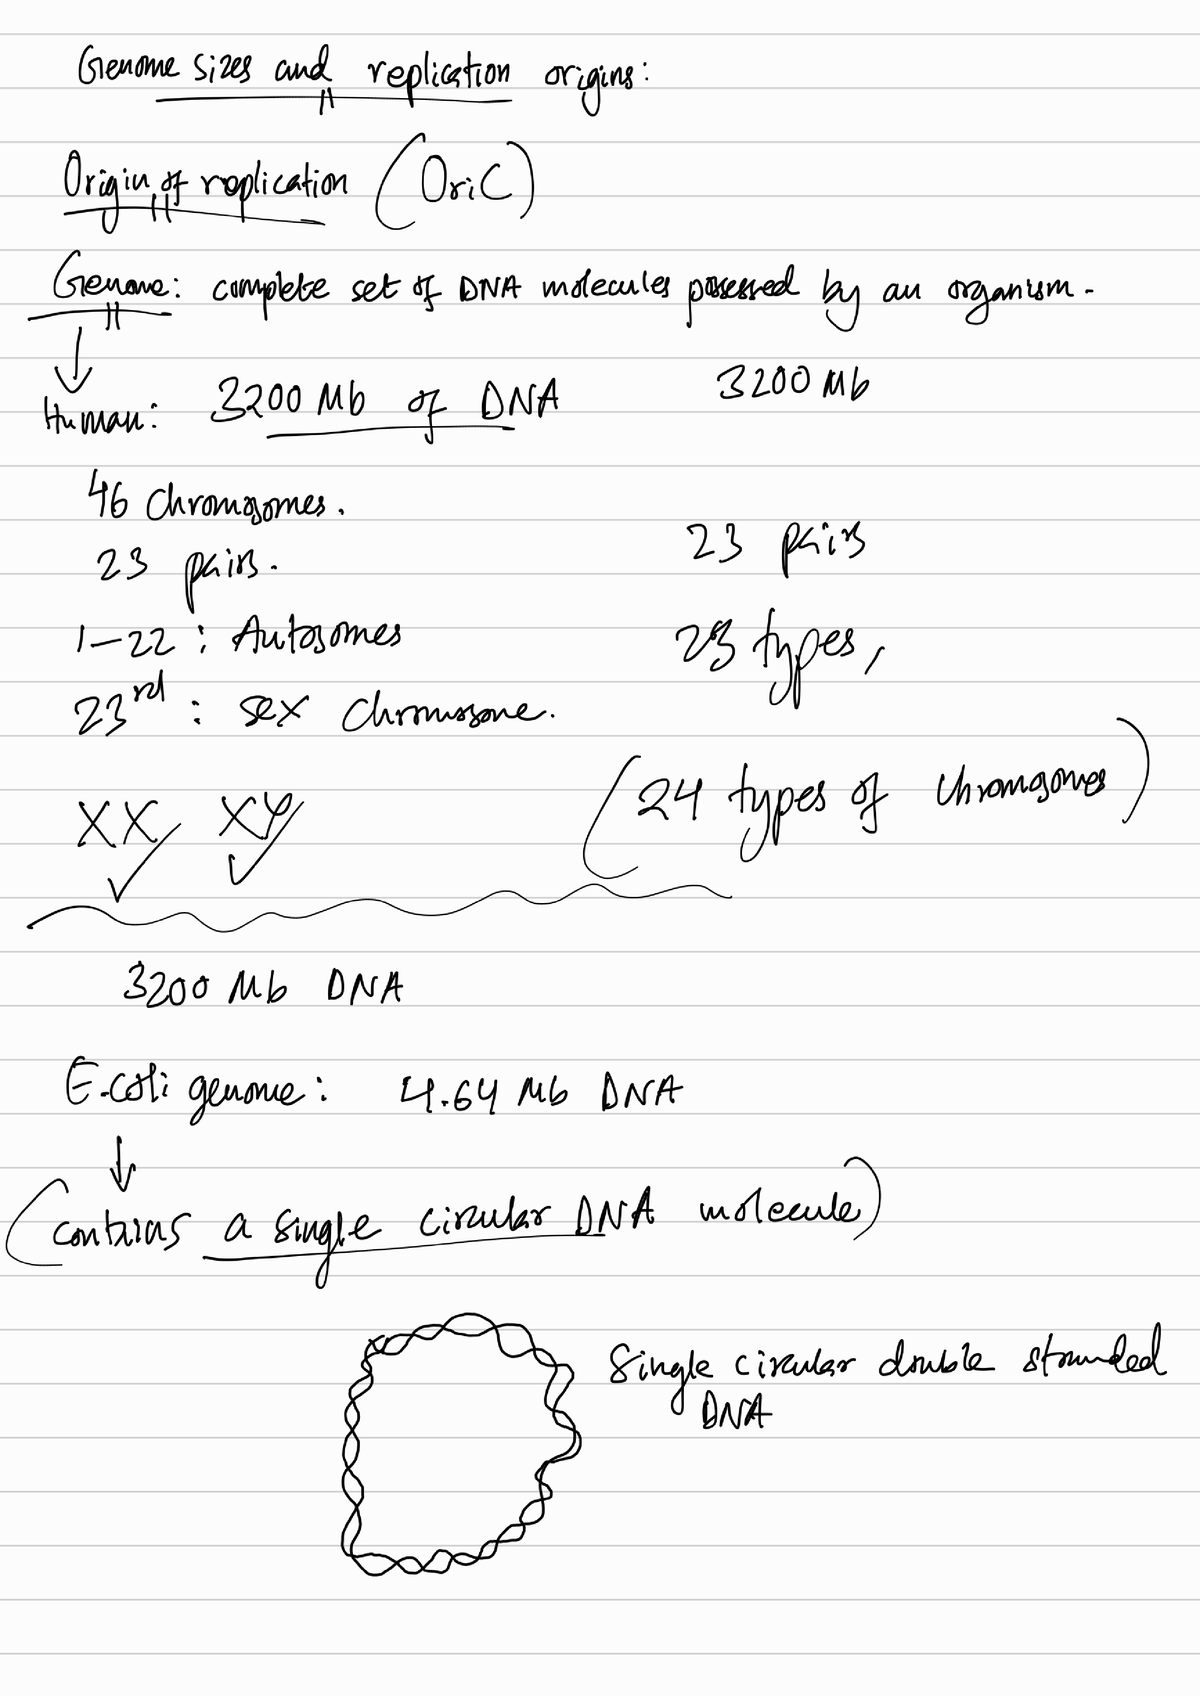 Genome sizes and replication origins:
Origin of replication (OriC)
Genome: complete set of DNA molecules possessed by an organism.
Human: 3200 Mb of DNA 3200 Mb
46 Chromosomes.
23 pairs. 23 pairs
1-22 : Autosomes 23 types,
23rd : sex Chromosone.
XX XY (24 types of chromosomes)
3200 Mb DNA
E.coli genome: 4.64 Mb DNA
(contains a single circular DNA molecule)
Single circular double stranded
DNA